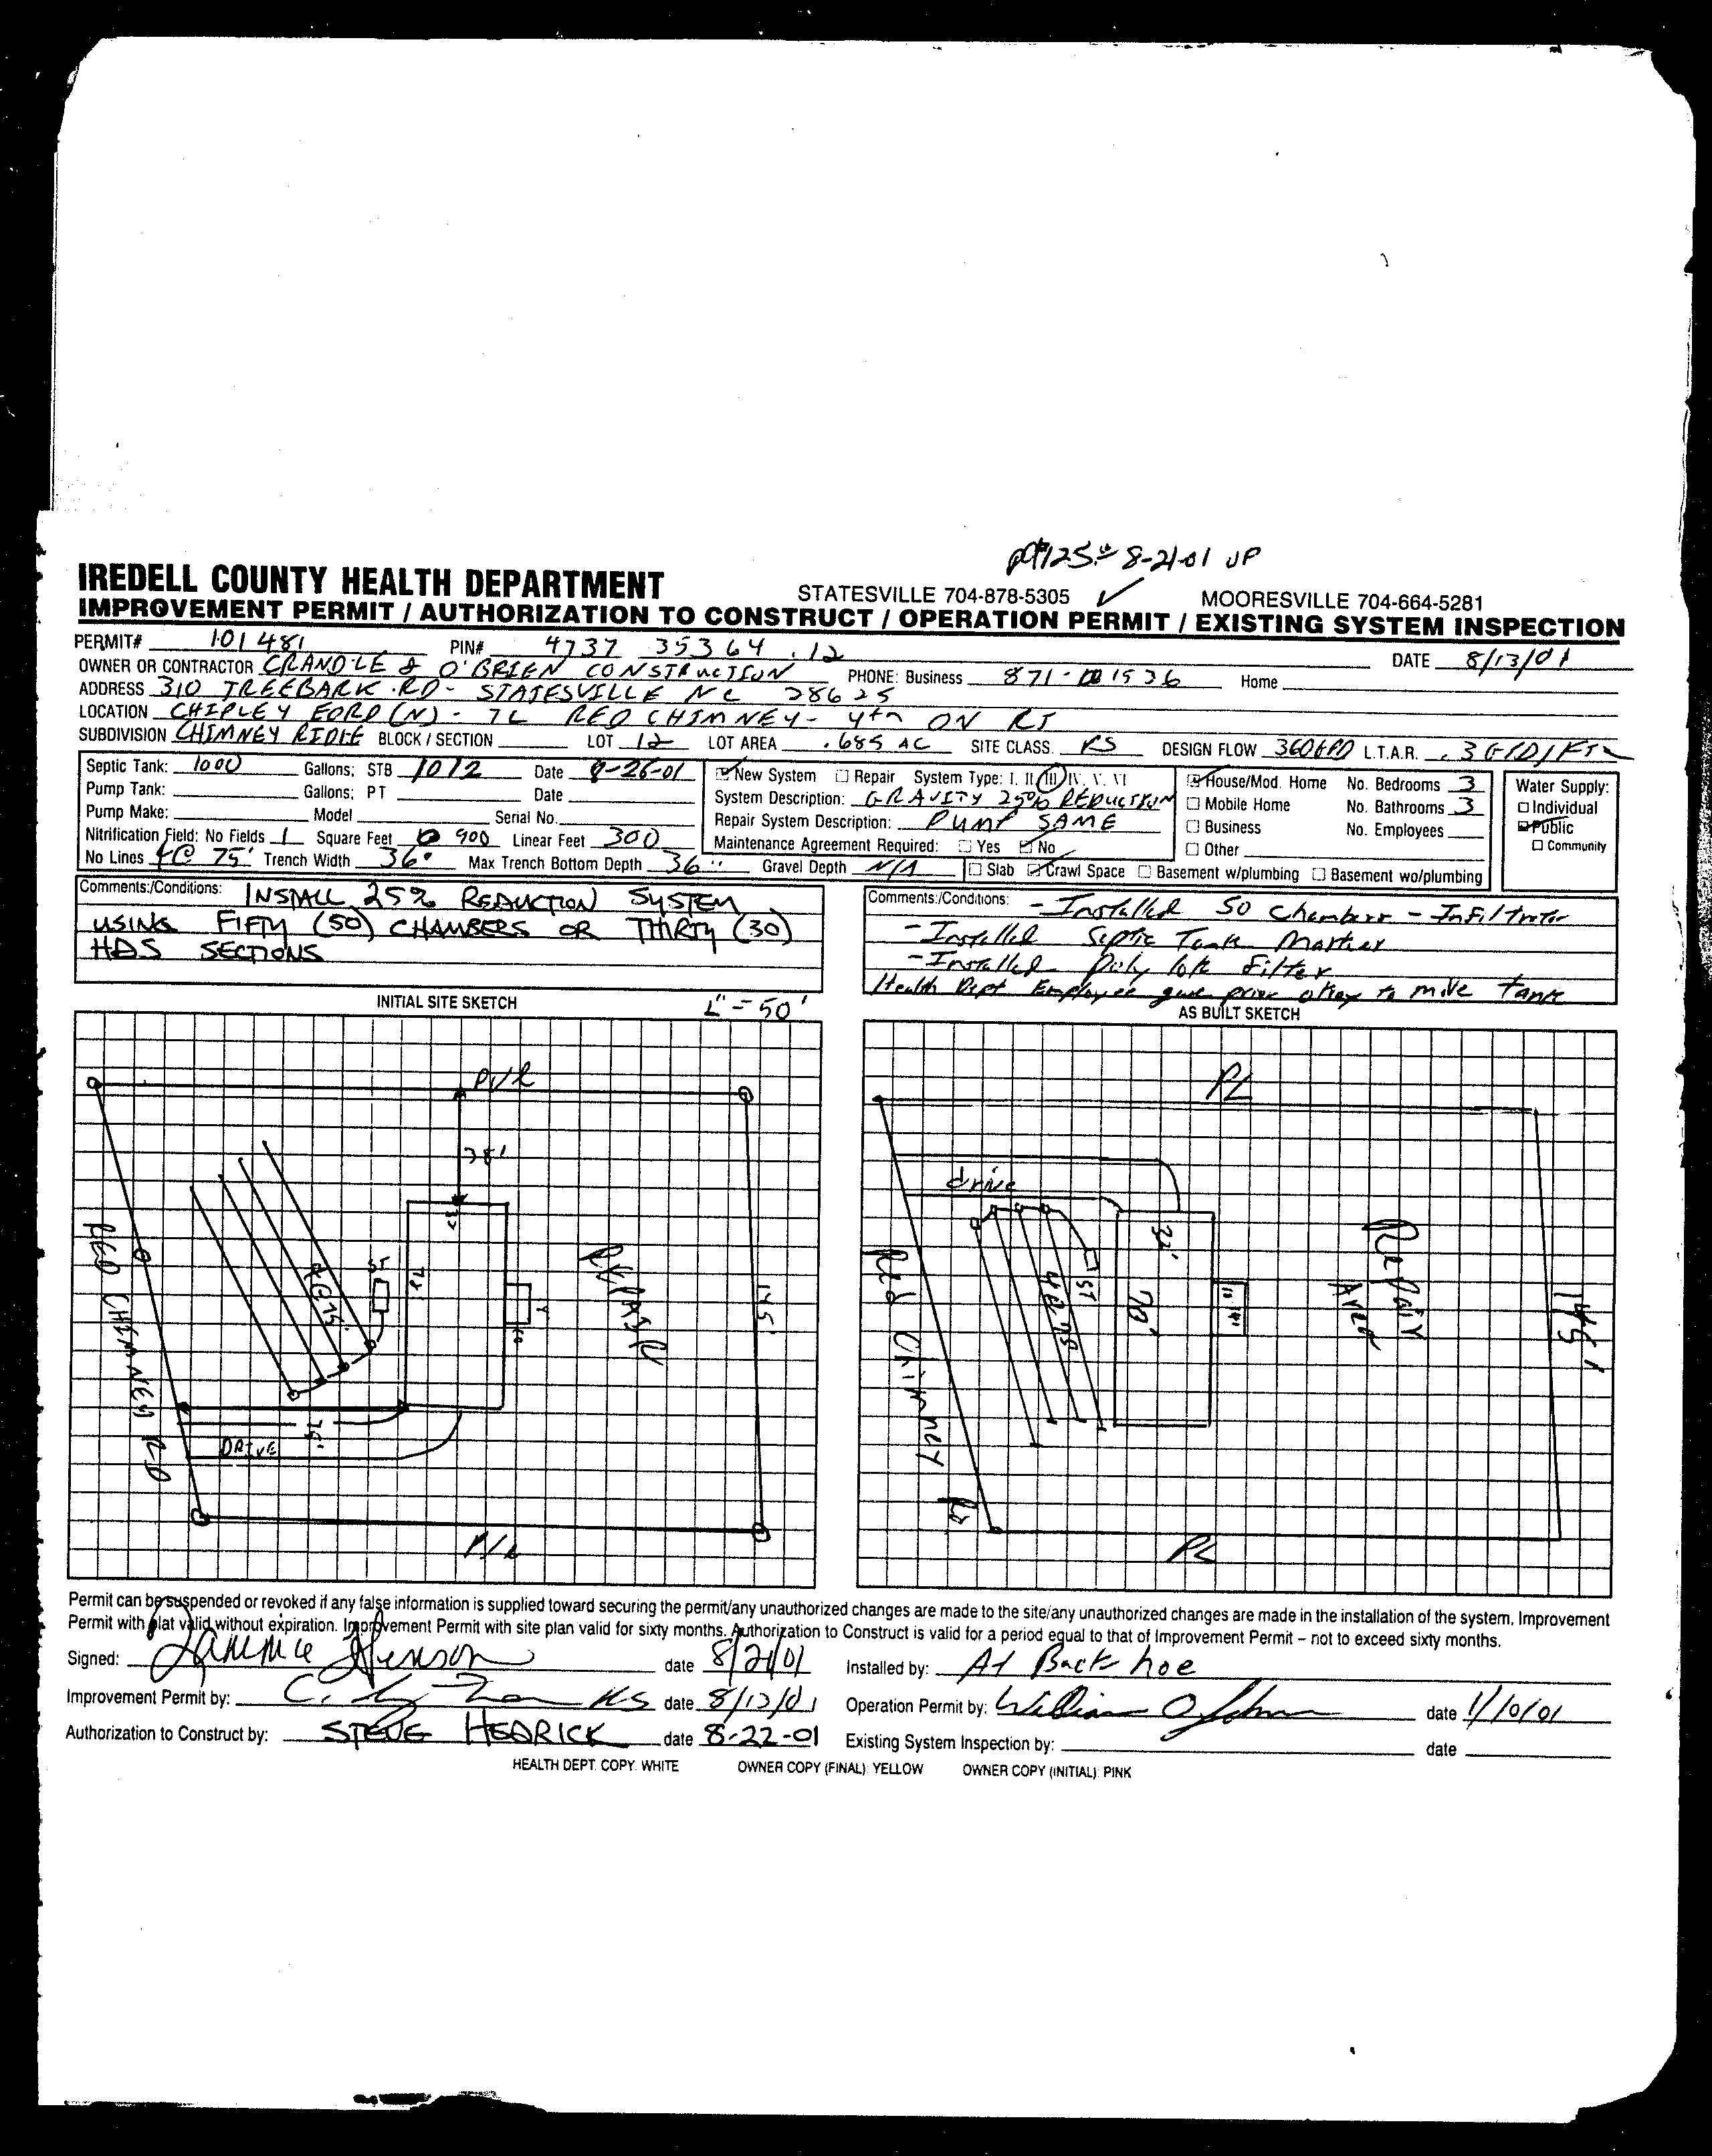 pd $125.00 8-21-01 JP
IREDELL COUNTY HEALTH DEPARTMENT STATESVILLE 704-878-5305 ✓ MOORESVILLE 704-664-5281
IMPROVEMENT PERMIT / AUTHORIZATION TO CONSTRUCT / OPERATION PERMIT / EXISTING SYSTEM INSPECTION
PERMIT# 101481 PIN# 4737 35364 .12 DATE 8/13/01
OWNER OR CONTRACTOR CRANDLE & O'BRIEN CONSTRUCTION PHONE: Business 871-1536 Home
ADDRESS 310 TREEBARK RD- STATESVILLE NC 28625
LOCATION CHIPLEY FORD (N) - TL RED CHIMNEY - 4th ON RT
SUBDIVISION CHIMNEY RIDGE BLOCK / SECTION LOT 12 LOT AREA .685 AC SITE CLASS. PS DESIGN FLOW 360GPD L.T.A.R. .3 G/D/FT2
Septic Tank: 1000 Gallons; STB 1012 Date 9-26-01 New System Repair System Type: I. II III IV. V. VI House/Mod. Home No. Bedrooms 3 Water Supply:
Pump Tank: Gallons; PT Date System Description: GRAVITY 25% REDUCTION Mobile Home No. Bathrooms 3 Individual
Pump Make: Model Serial No. Repair System Description: PUMP SAME Business No. Employees Public
Nitrification Field: No Fields 1 Square Feet 900 Linear Feet 300 Maintenance Agreement Required: Yes No Other Community
No Lines 4@ 75' Trench Width 36" Max Trench Bottom Depth 36" Gravel Depth N/A Slab Crawl Space Basement w/plumbing Basement wo/plumbing
Comments:/Conditions: INSTALL 25% REDUCTION SYSTEM
USING FIFTY (50) CHAMBERS OR THIRTY (30)
HDS SECTIONS
Comments:/Conditions: - Installed 50 Chambers - Infiltrator
- Installed Septic Tank Marker
- Installed Poly lok Filter
Health Dept Employee gave prior okay to move tank
INITIAL SITE SKETCH 1"=50'
P/L
38'
32
ST
70'
4@75'
REPAIR
145'
RED CHIMNEY RD
75'
DRIVE
P/L
AS BUILT SKETCH
PL
drive
32'
ST
4@75
70'
Repair
Area
145'
Red Chimney Rd
PL
Permit can be suspended or revoked if any false information is supplied toward securing the permit/any unauthorized changes are made to the site/any unauthorized changes are made in the installation of the system. Improvement
Permit with plat valid without expiration. Improvement Permit with site plan valid for sixty months. Authorization to Construct is valid for a period equal to that of Improvement Permit – not to exceed sixty months.
Signed: date 8/21/01 Installed by: A1 Back hoe
Improvement Permit by: date 8/13/01 Operation Permit by: William date 1/10/01
Authorization to Construct by: STEVE HEDRICK date 8-22-01 Existing System Inspection by: date
HEALTH DEPT. COPY: WHITE OWNER COPY (FINAL): YELLOW OWNER COPY (INITIAL): PINK